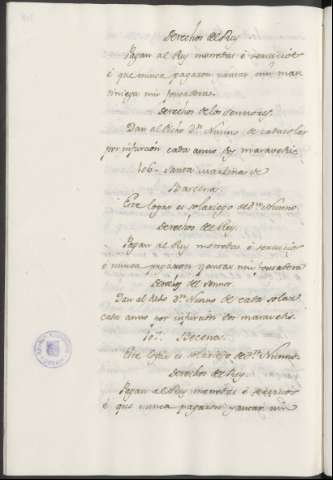 Derechos del Rey
Pagan al Rey monedas è servicios
è que nunca pagaron yantar nin mar
tiniega nin fonsadera.
Derechos de los Sennores.
Dan al dicho Dn. Nunno de cada solar
por infurcion cada anno dos maravedis.
106. Santa Marina de
Barcena.
Este logar es solariego de Dn. Nunno.
Derechos del Rey.
Pagan al Rey monedas è servicios
è nunca pagaron yantar nin fonsadera
Derechos del Sennor.
Dan al dicho Dn. Nunno de cada solar
cada anno por infurcion dos maravedis.
107. Becena.
Este logar es solariego de Dn. Nunno.
Derechos del Rey.
Pagan al Rey monedas è servicios
è que nunca pagaron yantar nin